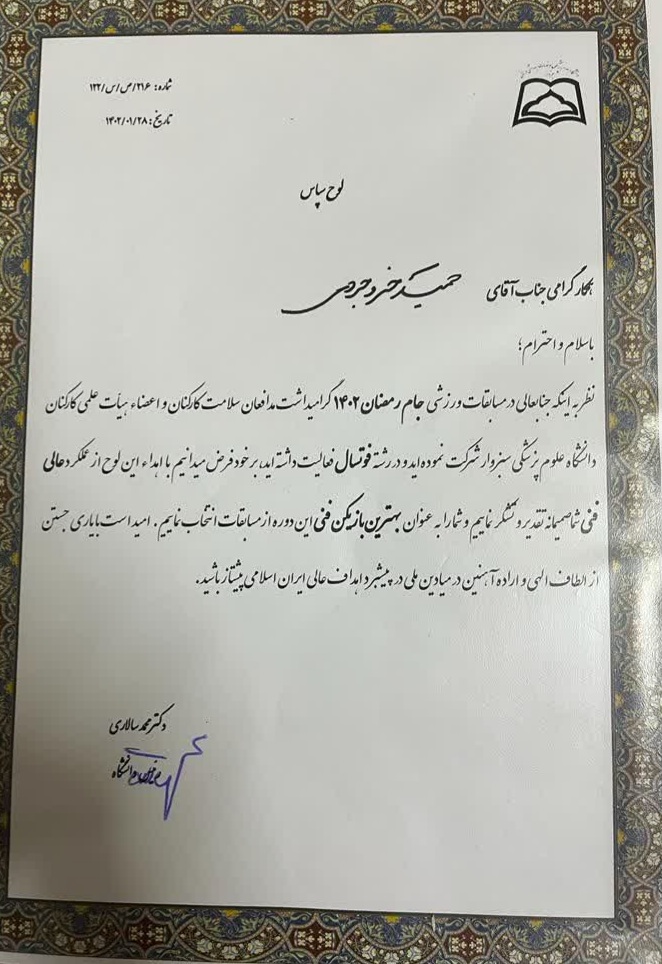 شماره: ۲۱۶/ص/س/۱۲۲
تاریخ: ۱۴۰۲/۰۱/۲۸
لوح سپاس
همکار گرامی جناب آقای حمید خسروجردی
باسلام و احترام؛
نظر به اینکه جنابعالی در مسابقات ورزشی جام رمضان ۱۴۰۲ گرامیداشت مدافعان سلامت کارکنان و اعضاء هیأت علمی کارکنان
دانشگاه علوم پزشکی سبزوار شرکت نموده اید و در رشته فوتسال فعالیت داشته اید، بر خود فرض میدانیم با اهداء این لوح از عملکرد عالی
فنی شما صمیمانه تقدیر و تشکر نماییم و شما را به عنوان بهترین بازیکن فنی این دوره از مسابقات انتخاب نماییم. امید است با یاری جستن
از الطاف الهی و اراده آهنین در میادین ملی در پیشبرد اهداف عالی ایران اسلامی پیشتاز باشید.
دکتر محمد سالاری
دانشگاه